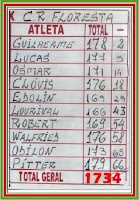 C R FLORESTA
ATLETA TOTAL –
GUILHERME 178 2
LUCAS 177 5
OSMAR 171 14
CLÓVIS 176 18
EDOLIN 169 29
LOURIVAL 166 43
ROBERT 169 54
WALFRIED 176 58
ODILON 173 65
PITTER 179 66
TOTAL GERAL 1734